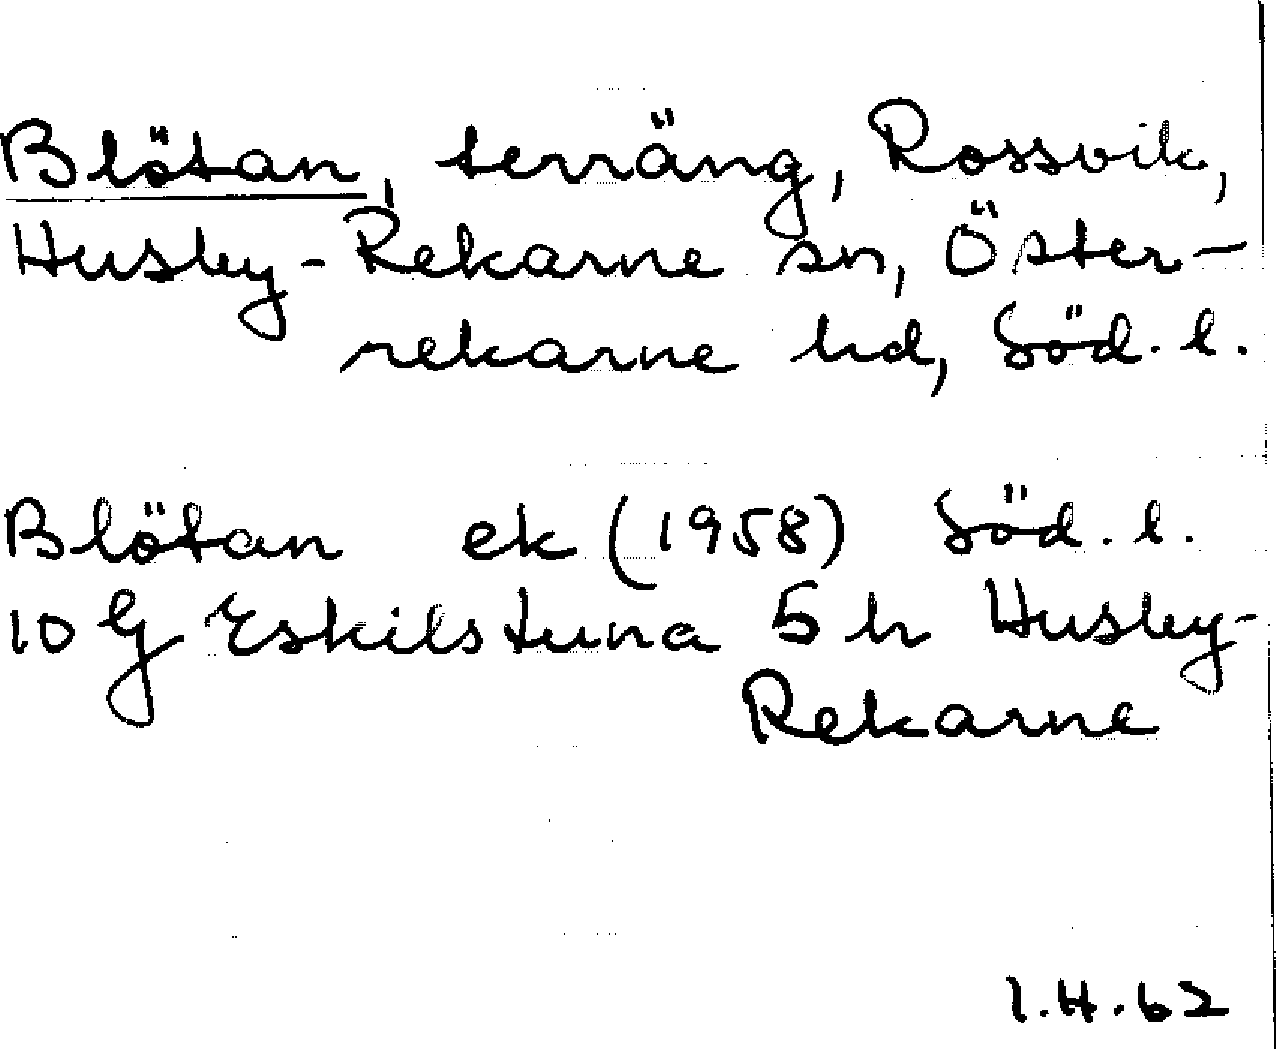 Blötan, terräng, Rossvik,
Husby-Rekarne sn, Öster-
rekarne hd, Söd. l.
Blötan ek (1958) Söd. l.
10 G Eskilstuna 5 h Husby-
Rekarne
1.H.62